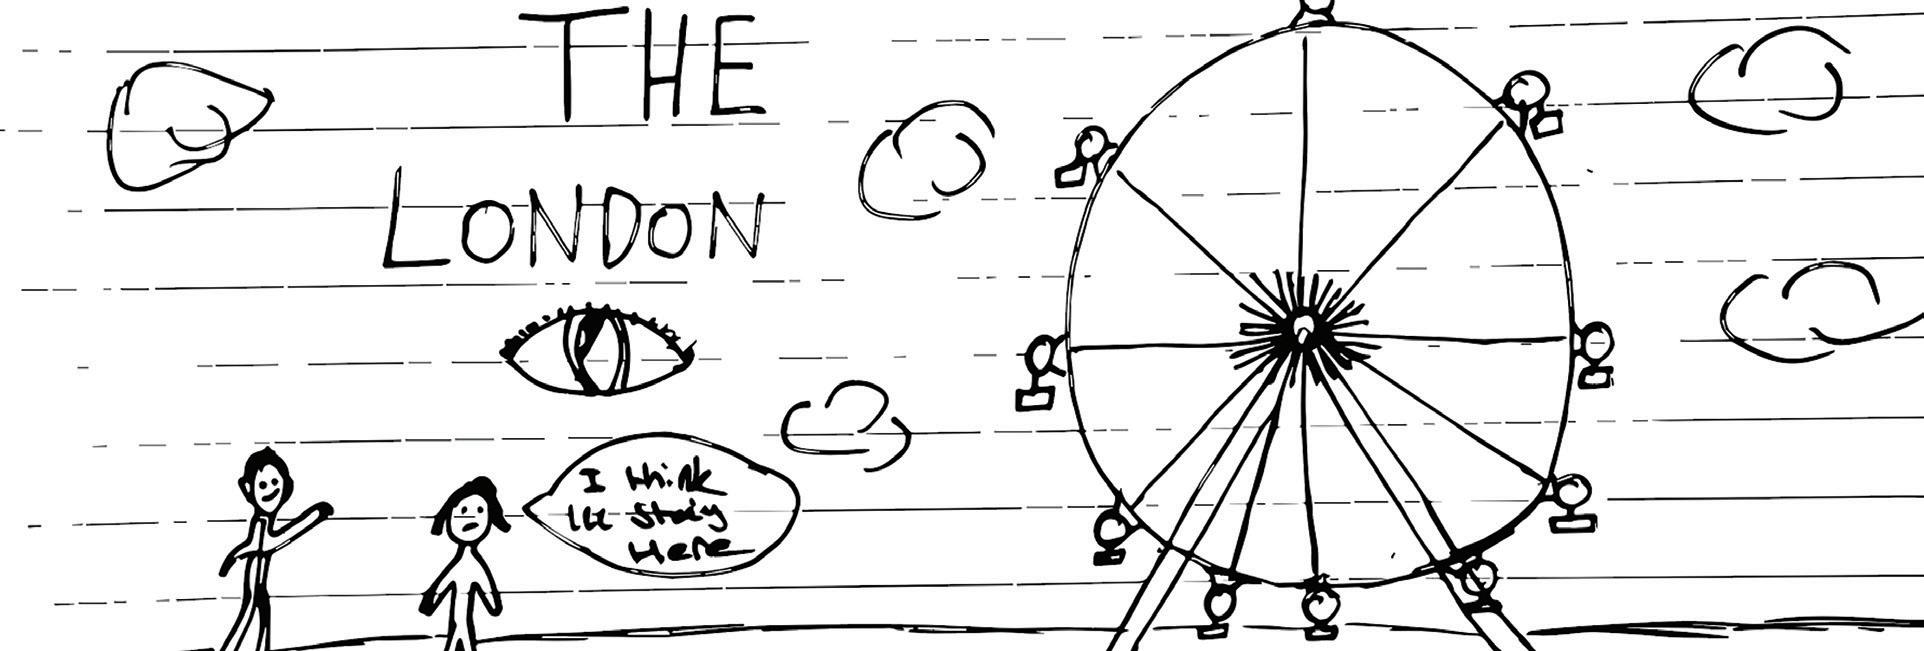 THE
LONDON
I think
I'll stay
Here